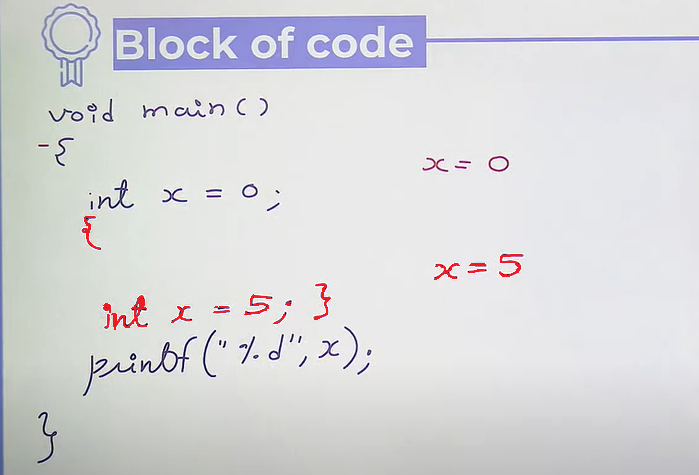 Block of code
void main()
-{
x = 0
int x = 0;
{
x = 5
int x = 5; }
printf("%d", x);
}